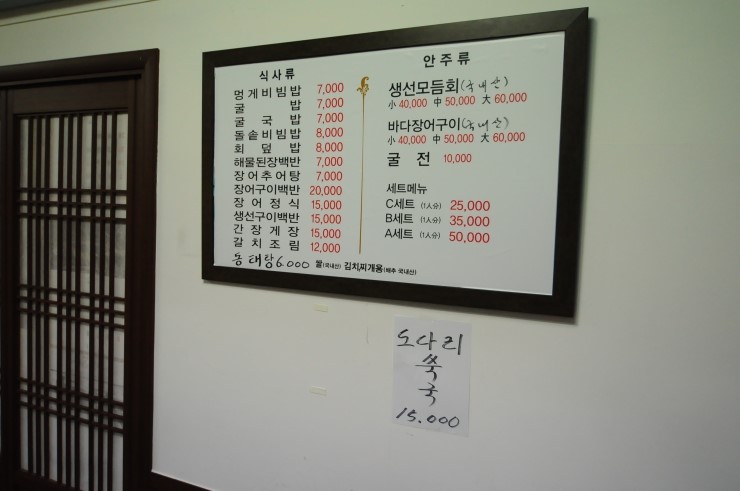 식사류
멍게비빔밥 7,000
굴 밥 7,000
굴 국 밥 7,000
돌솥비빔밥 8,000
회 덮 밥 8,000
해물된장백반 7,000
장어추어탕 7,000
장어구이백반 20,000
장 어 정 식 15,000
생선구이백반 15,000
간 장 게 장 15,000
갈 치 조 림 12,000
동태탕 6.000
쌀(국내산) 김치찌개용(배추 국내산)
안주류
생선모듬회(국내산)
小 40,000 中 50,000 大 60,000
바다장어구이(국내산)
小 40,000 中 50,000 大 60,000
굴 전 10,000
세트메뉴
C세트 (1人分) 25,000
B세트 (1人分) 35,000
A세트 (1人分) 50,000
도다리
쑥
국
15.000